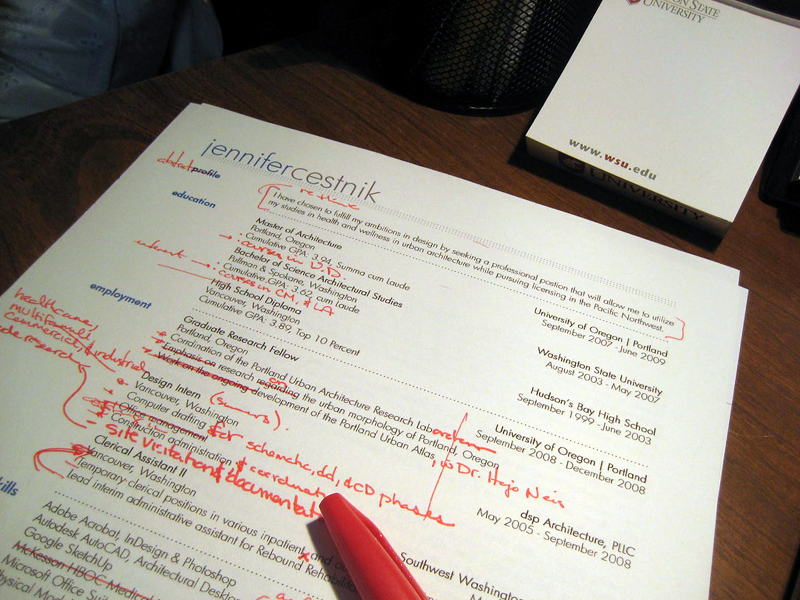 ON STATE
UNIVERSITY
www.wsu.edu
UNIVERSITY
jennifercestnik
abstract profile
refine
I have chosen to fulfill my ambitions in design by seeking a professional postion that will allow me to utilize
my studies in health and wellness in urban architecture while pursuing licensing in the Pacific Northwest.
education
Master of Architecture
University of Oregon | Portland
Portland, Oregon
September 2007 - June 2009
Cumulative GPA: 3.94, Summa cum Laude
courses in U.D.
Bachelor of Science Architectural Studies
Washington State University
Pullman & Spokane, Washington
August 2003 - May 2007
Cumulative GPA: 3.65, cum Laude
courses in CM, & LA
High School Diploma
Hudson's Bay High School
Vancouver, Washington
September 1999 - June 2003
Cumulative GPA: 3.89, Top 10 Percent
employment
healthcare,
multifamily,
commercial, & industrial
code research
Graduate Research Fellow
University of Oregon | Portland
Portland, Oregon
September 2008 - December 2008
Coordination of the Portland Urban Architecture Research Laboratory
Emphasis on research regarding on the urban morphology of Portland, Oregon
Work on the ongoing development of the Portland Urban Atlas, w Dr. Hajo Neis
Design Intern (summers).
dsp Architecture, PLLC
Vancouver, Washington
May 2005 - September 2008
Computer drafting for schematic, dd, & CD phases
Office management
Construction administration & coordination
site visitation & documentation
Clerical Assistant II
Southwest Washington
Vancouver, Washington
Temporary clerical positions in various inpatient and
Lead interim administrative assistant for Rebound Rehabilita
skills
Adobe Acrobat, InDesign & Photoshop
Autodesk AutoCAD, Architectural Desktop
Google SketchUp
McKesson HBOC Medical
Microsoft Office Suite
Physical Model